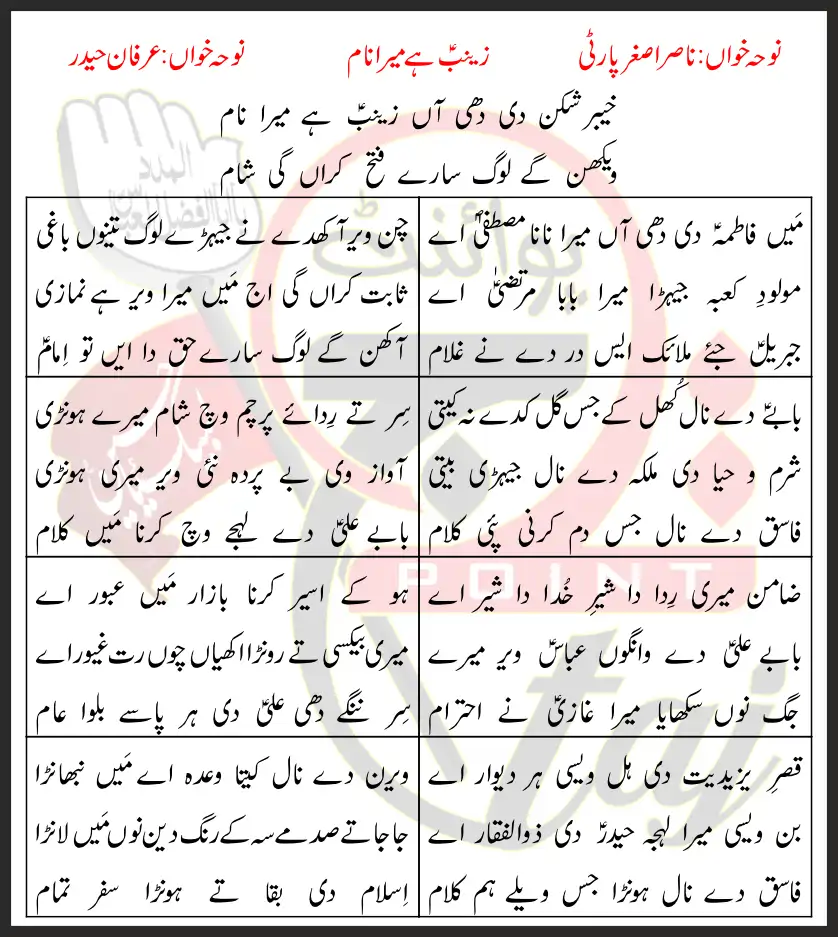 نوحہ خواں: ناصر اصغر پارٹی زینبؑ ہے میرا نام نوحہ خواں: عرفان حیدر
خیبر شکن دی دھی آں زینبؑ ہے میرا نام
ویکھن گے لوگ سارے فتح کراں گی شام
مَیں فاطمہؑ دی دھی آں میرا نانا مصطفیٰؐ اے
مولودِ کعبہ جیہڑا میرا بابا مرتضیٰؑ اے
جبریلؑ جئے ملائک ایس در دے نے غلام
چن ویر آکھدے نے جیہڑے لوگ تینوں باغی
ثابت کراں گی اج مَیں میرا ویر ہے نمازی
آکھن گے لوگ سارے حق دا ایں تو اِمامؑ
بابےؑ دے نال کُھل کے جس گل کدے نہ کیتی
شرم و حیا دی ملکہ دے نال جیہڑی بیتی
فاسق دے نال جس دم کرنی پئی کلام
سِر تے رِدائے پرچم وچ شام میرے ہونڑی
آواز وی بے پردہ نئی ویر میری ہونڑی
بابے علیؑ دے لہجے وچ کرنا مَیں کلام
ضامن میری رِدا دا شیرِ خُدا دا شیر اے
بابے علیؑ دے وانگوں عباسؑ ویر میرے
جگ نوں سکھایا میرا غازیؑ نے احترام
ہو کے اسیر کرنا بازار مَیں عبور اے
میری بیکسی تے رونڑا اکھیاں چوں رت غیور اے
سِر ننگے دھی علیؑ دی ہر پاسے بلوا عام
قصرِ یزیدیت دی ہل ویسی ہر دیوار اے
بن ویسی میرا لہجہ حیدرؑ دی ذوالفقار اے
فاسق دے نال ہونڑا جس ویلے ہم کلام
ویرن دے نال کیتا وعدہ اے مَیں نبھانڑا
جا جا تے صدمے سہ کے رنگ دین نوں مَیں لانڑا
اِسلام دی بقا تے ہونڑا سفر تمام
المدد
یا ابا الفضل العباس
پوائنٹ
POINT
taj